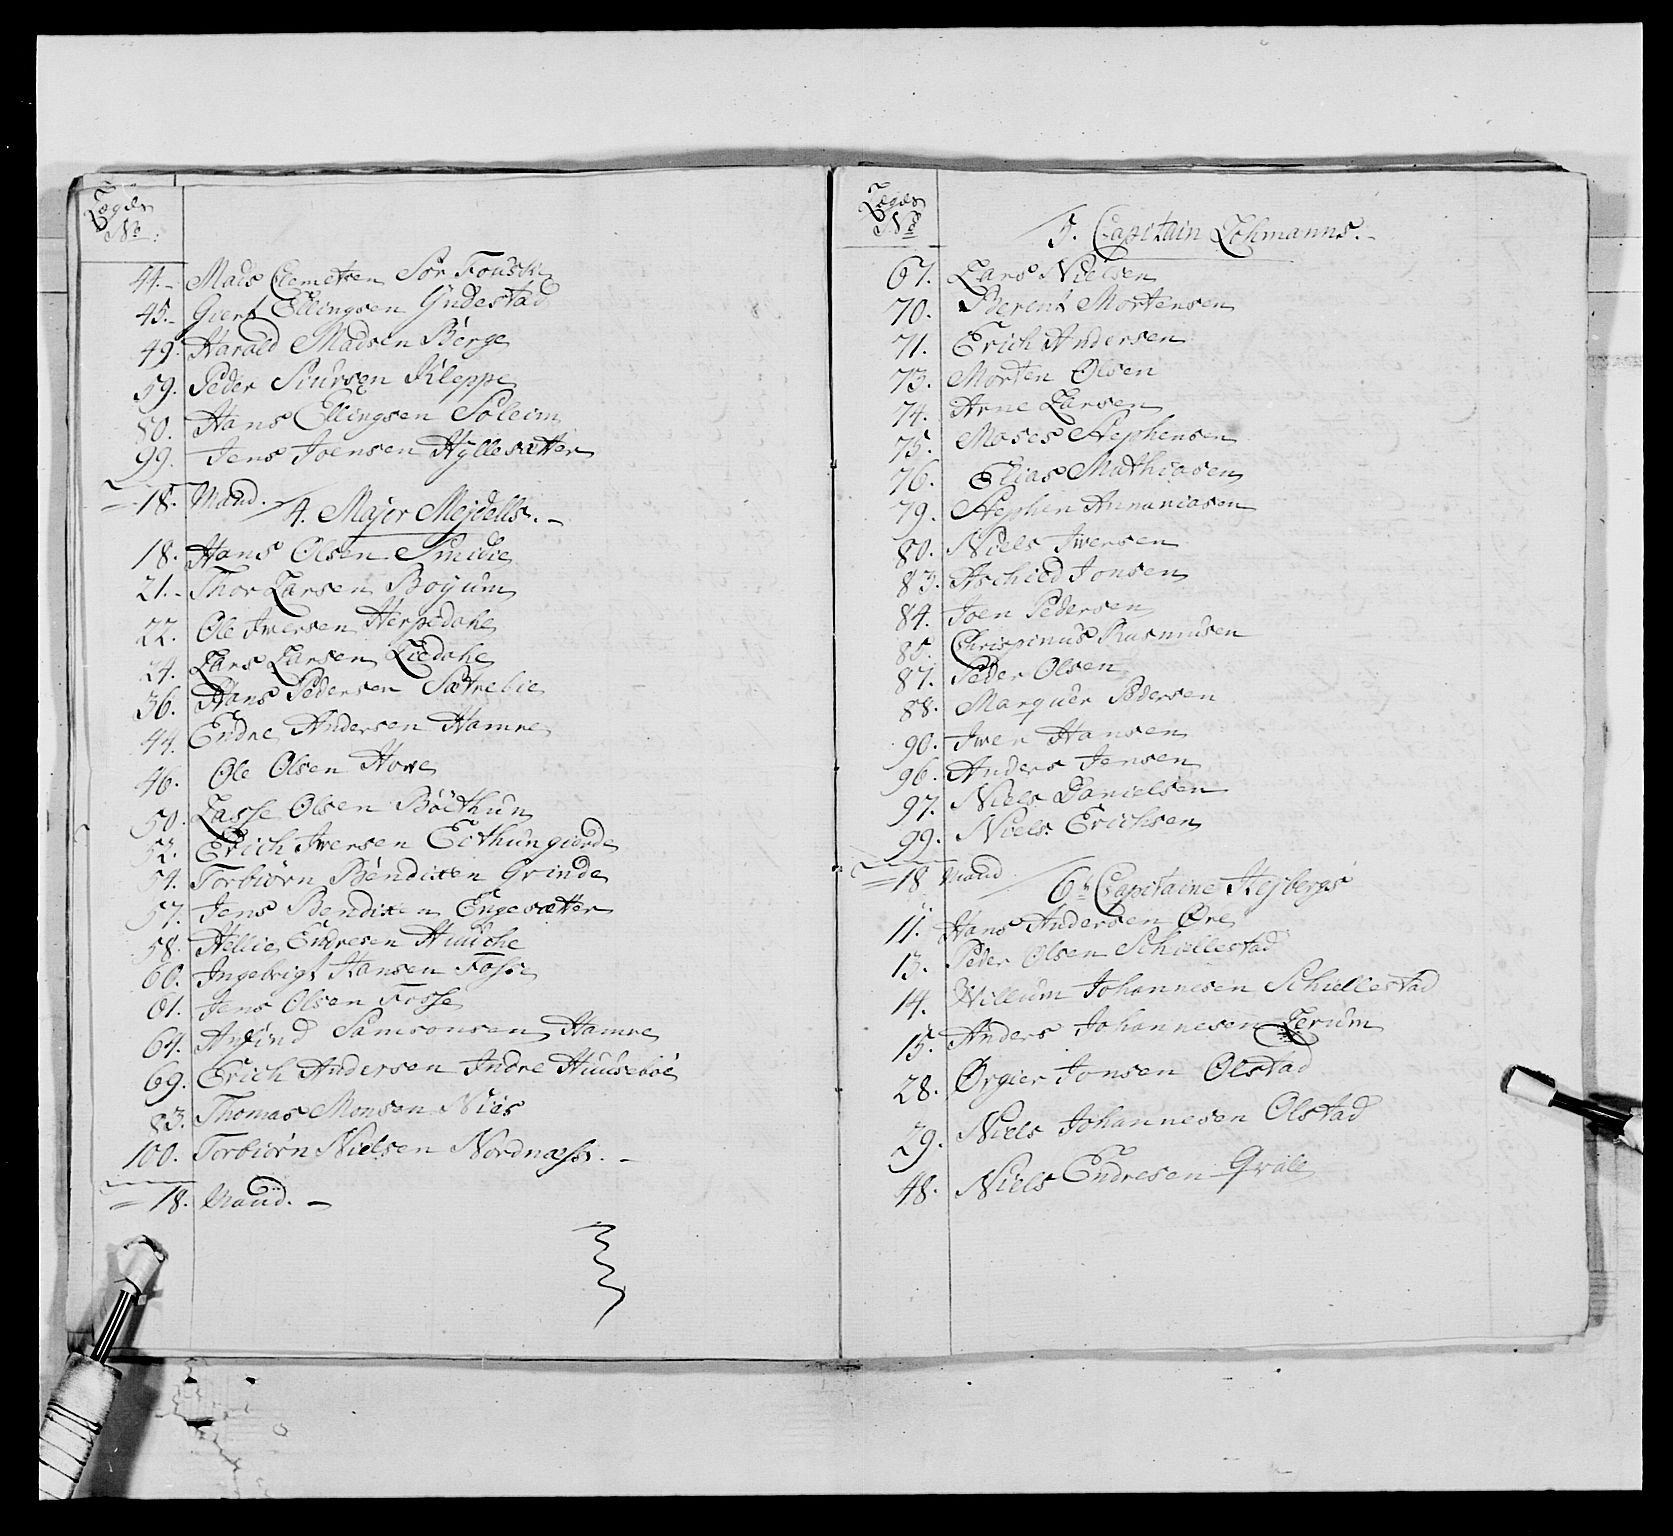 Lægds
No:
44. Mads Clemetsen Sör Fousk
45. Giert Ellingsen Yndestad
49. Harald Madsen Börge
59. Peder Siursen Kleppe
80. Hans Ellingsen Soleim
99. Jens Joensen Hyllesætter
= 18. Mand.
4. Major Mejdells. -
18. Hans Olsen Smidie
21. Thor Larsen Boyum
22. Ole Iversen Herpedahl
24. Lars Larsen Liedahl
36. Hans Pedersen Sætrebie
44. Endre Andersen Hamre
46. Ole Olsen Hove
50. Lasse Olsen Böethun
52. Erich Iversen Eithungierde
54. Torbiörn Bendixen Grinde
57. Jens Bendixen Engesætter
58. Hellie Endresen Huuche
60. Ingebrigt Hansen Fosse
61. Jens Olsen Fosse
64. Ayvind Samsonsen Hamre
69. Erich Andersen Indre Huuseböe
83. Thomas Monsen Nies
100. Torbiörn Nielsen Nordnæss. -
= 18. Mand. -
Lægds
No
5. Capitain Lohmanns. -
67. Lars Nielsen
70. Berent Mortensen
71. Erich Andersen
73. Morten Olsen
74. Arne Larsen
75. Moses Stephensen
76. Elias Mathiasen
79. Stephen Annaniasen
80. Niels Iversen
83. Aschied Jonsen
84. Joen Pedersen
85. Chrispinus Rasmusen
87. Peder Olsen
88. Marquer Pedersen
90. Iver Hansen
96. Anders Jensen
97. Niels Danielsen
99. Niels Erichsen
= 18 Mand
6te Capitaine Kejbergs
11. Hans Andersen Öre
13. Peder Olsen Schiellestad
14. Willum Johannesen Schiellestad
15. Anders Johannesen Lerum
28. Ørgier Jonsen Olstad
29. Niels Johannesen Olstad
48. Niels Endresen Qvåle